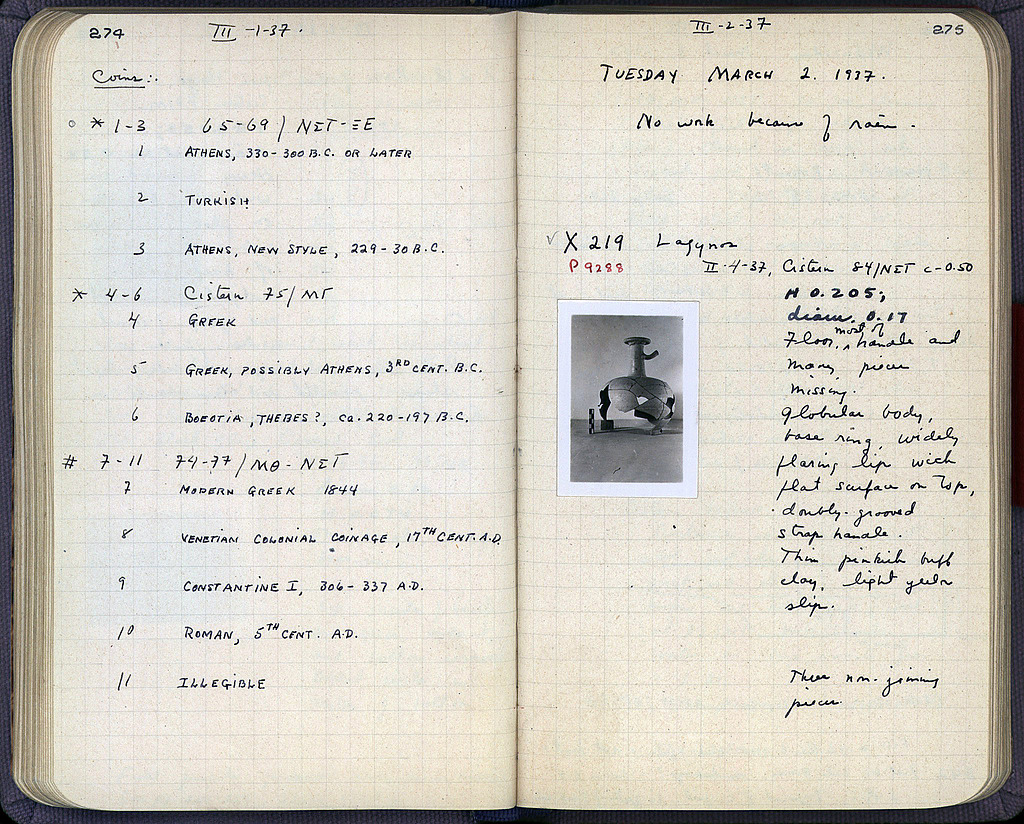 274
III -1-37.
Coins:.
○ * 1-3 65-69/ΝΣΤ-ΞΕ
1 ATHENS, 330-300 B.C. OR LATER
2 TURKISH
3 ATHENS, NEW STYLE, 229-30 B.C.
* 4-6 Cistern 75/ΜΓ
4 GREEK
5 GREEK, POSSIBLY ATHENS, 3RD CENT. B.C.
6 BOEOTIA, THEBES?, ca. 220-197 B.C.
# 7-11 74-77/ΜΘ-ΝΣΤ
7 MODERN GREEK 1844
8 VENETIAN COLONIAL COINAGE, 17TH CENT. A.D.
9 CONSTANTINE I, 306-337 A.D.
10 ROMAN, 5TH CENT. A.D.
11 ILLEGIBLE
III -2-37
275
TUESDAY MARCH 2. 1937.
No work because of rain.
√ X 219 Lagynos
P 9288
II-4-37, Cistern 84/ΝΣΤ c-0.50
H 0.205;
diam. 0.17
Floor, most of handle and
many pieces
missing.
globular body,
base ring, widely
flaring lip with
flat surface on top,
doubly-grooved
strap handle.
Thin pinkish buff
clay, light yellow
slip.
Three non-joining
pieces.